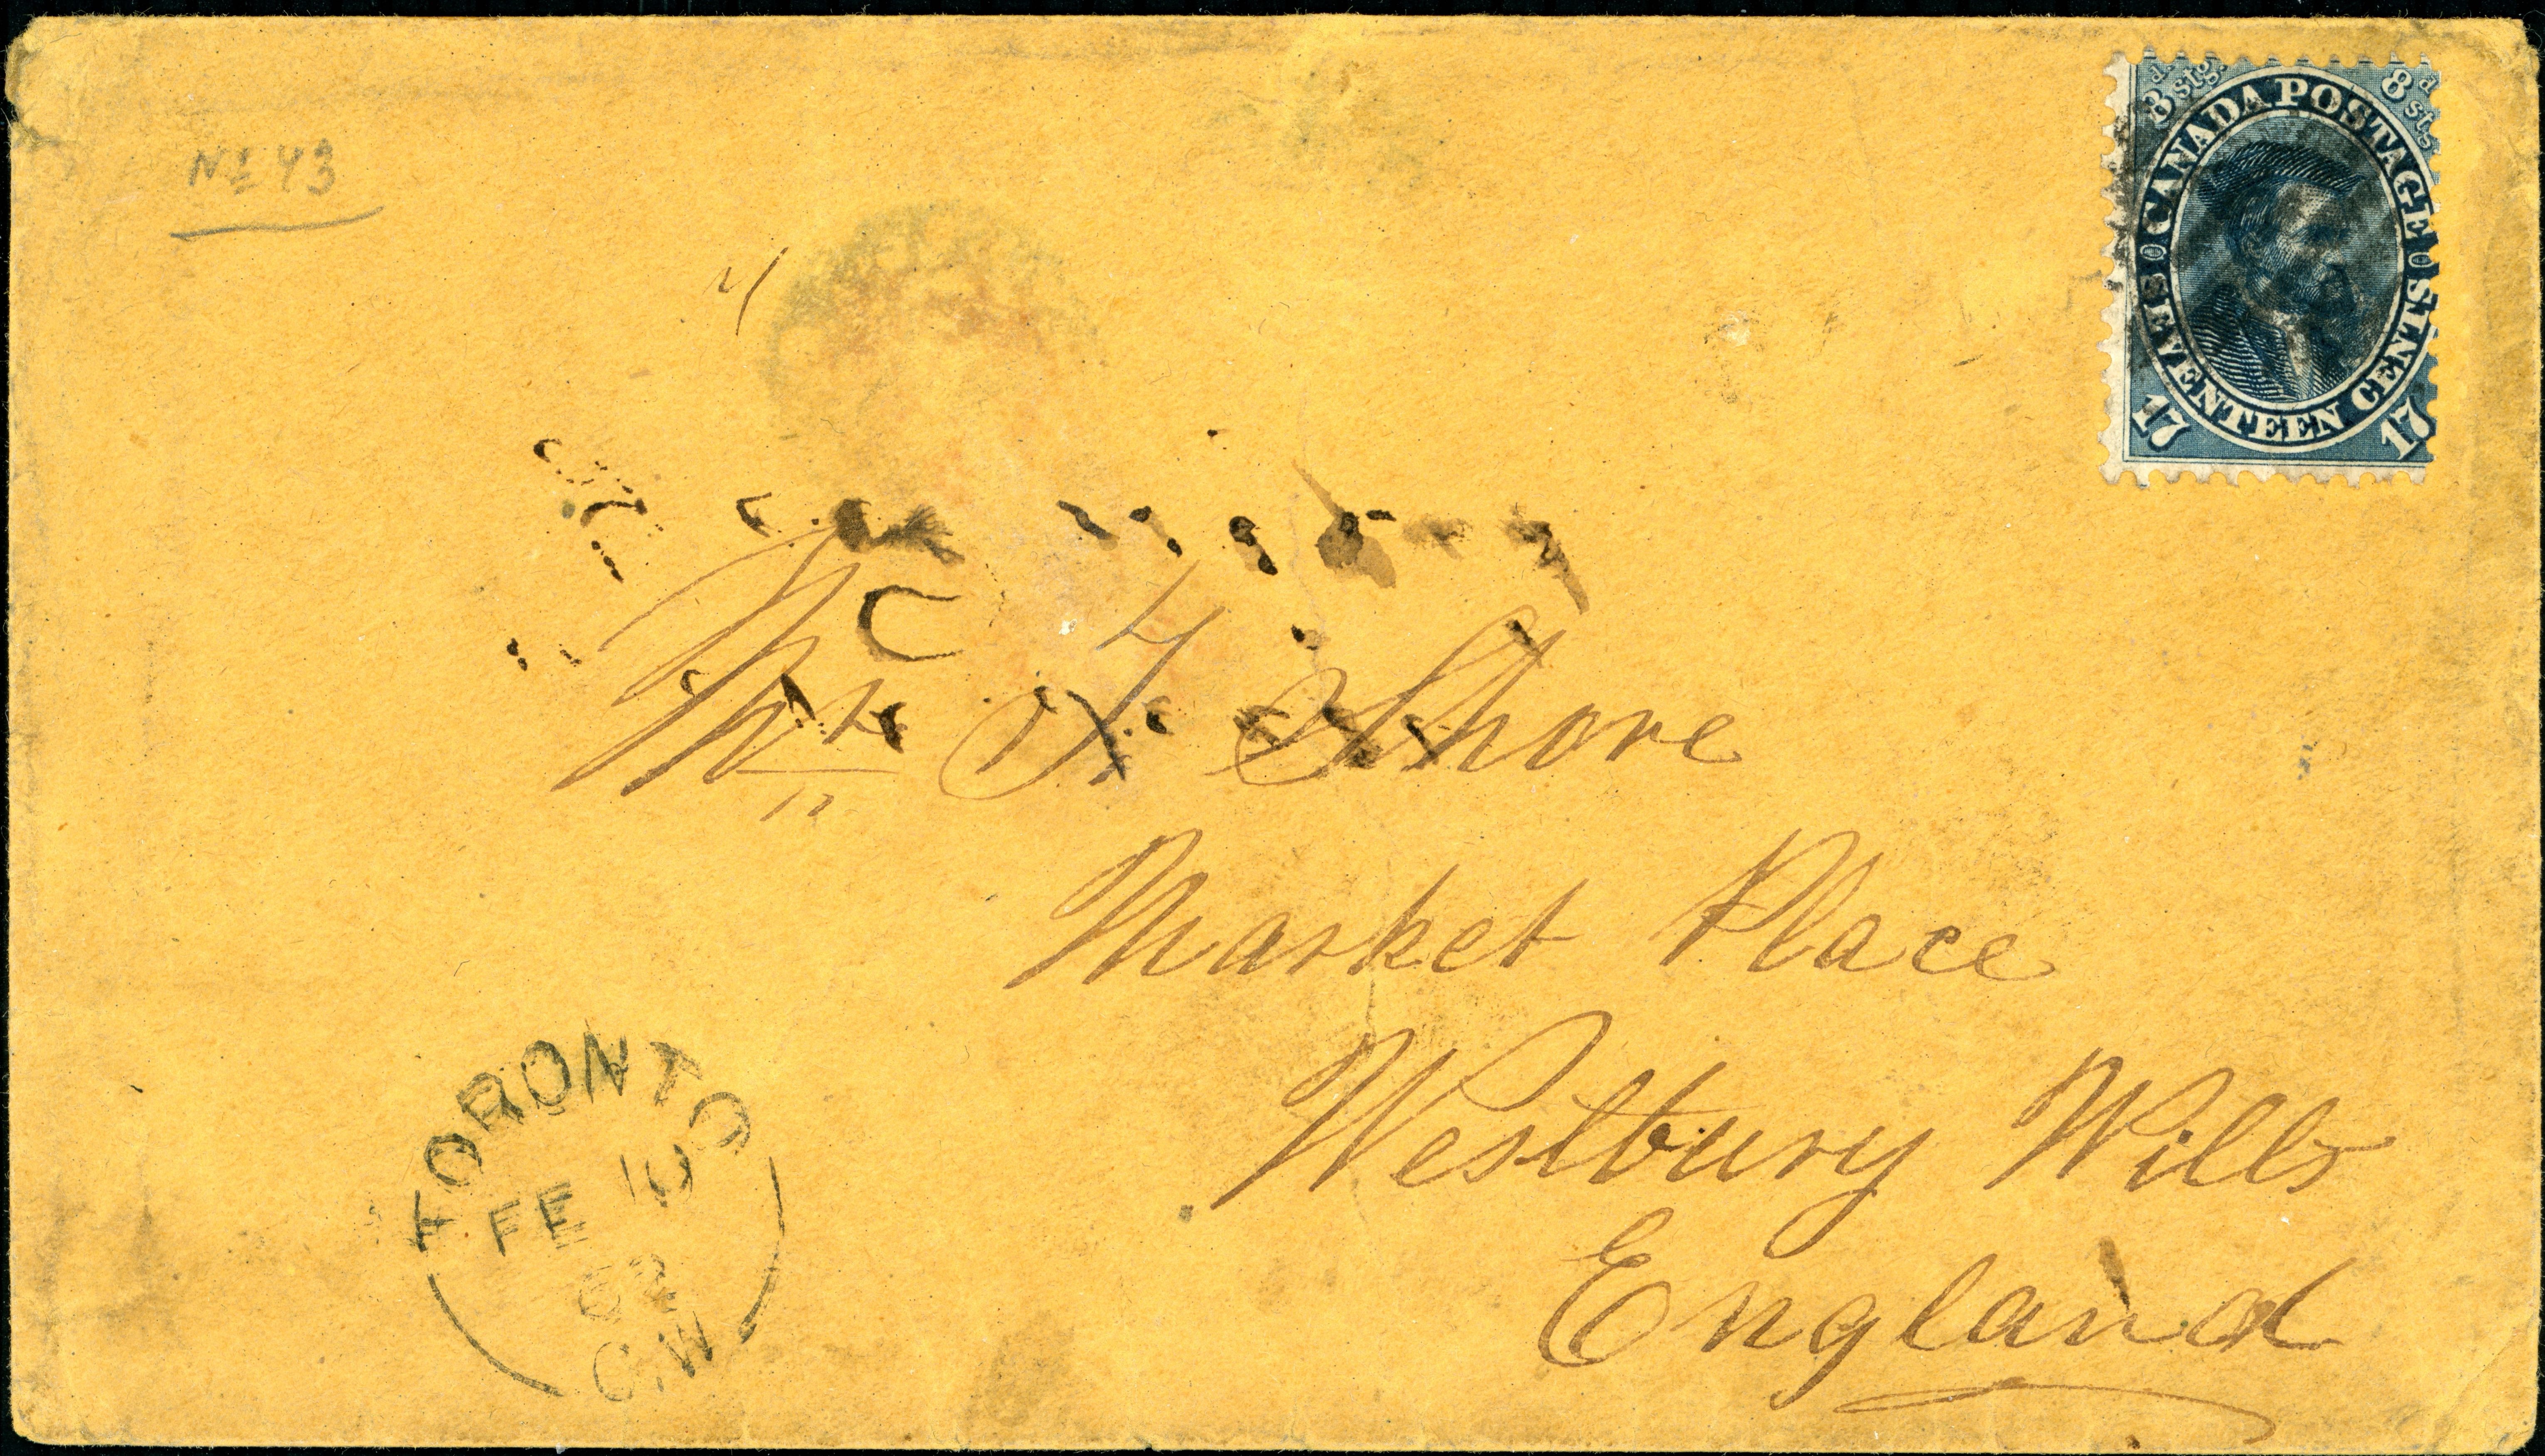 No 43
8d stg. 8d stg.
CANADA POSTAGE
SEVENTEEN CENTS
17 17
Shore
Market Place
Westbury Wilts
England
TORONTO
FE 10
62
C.W